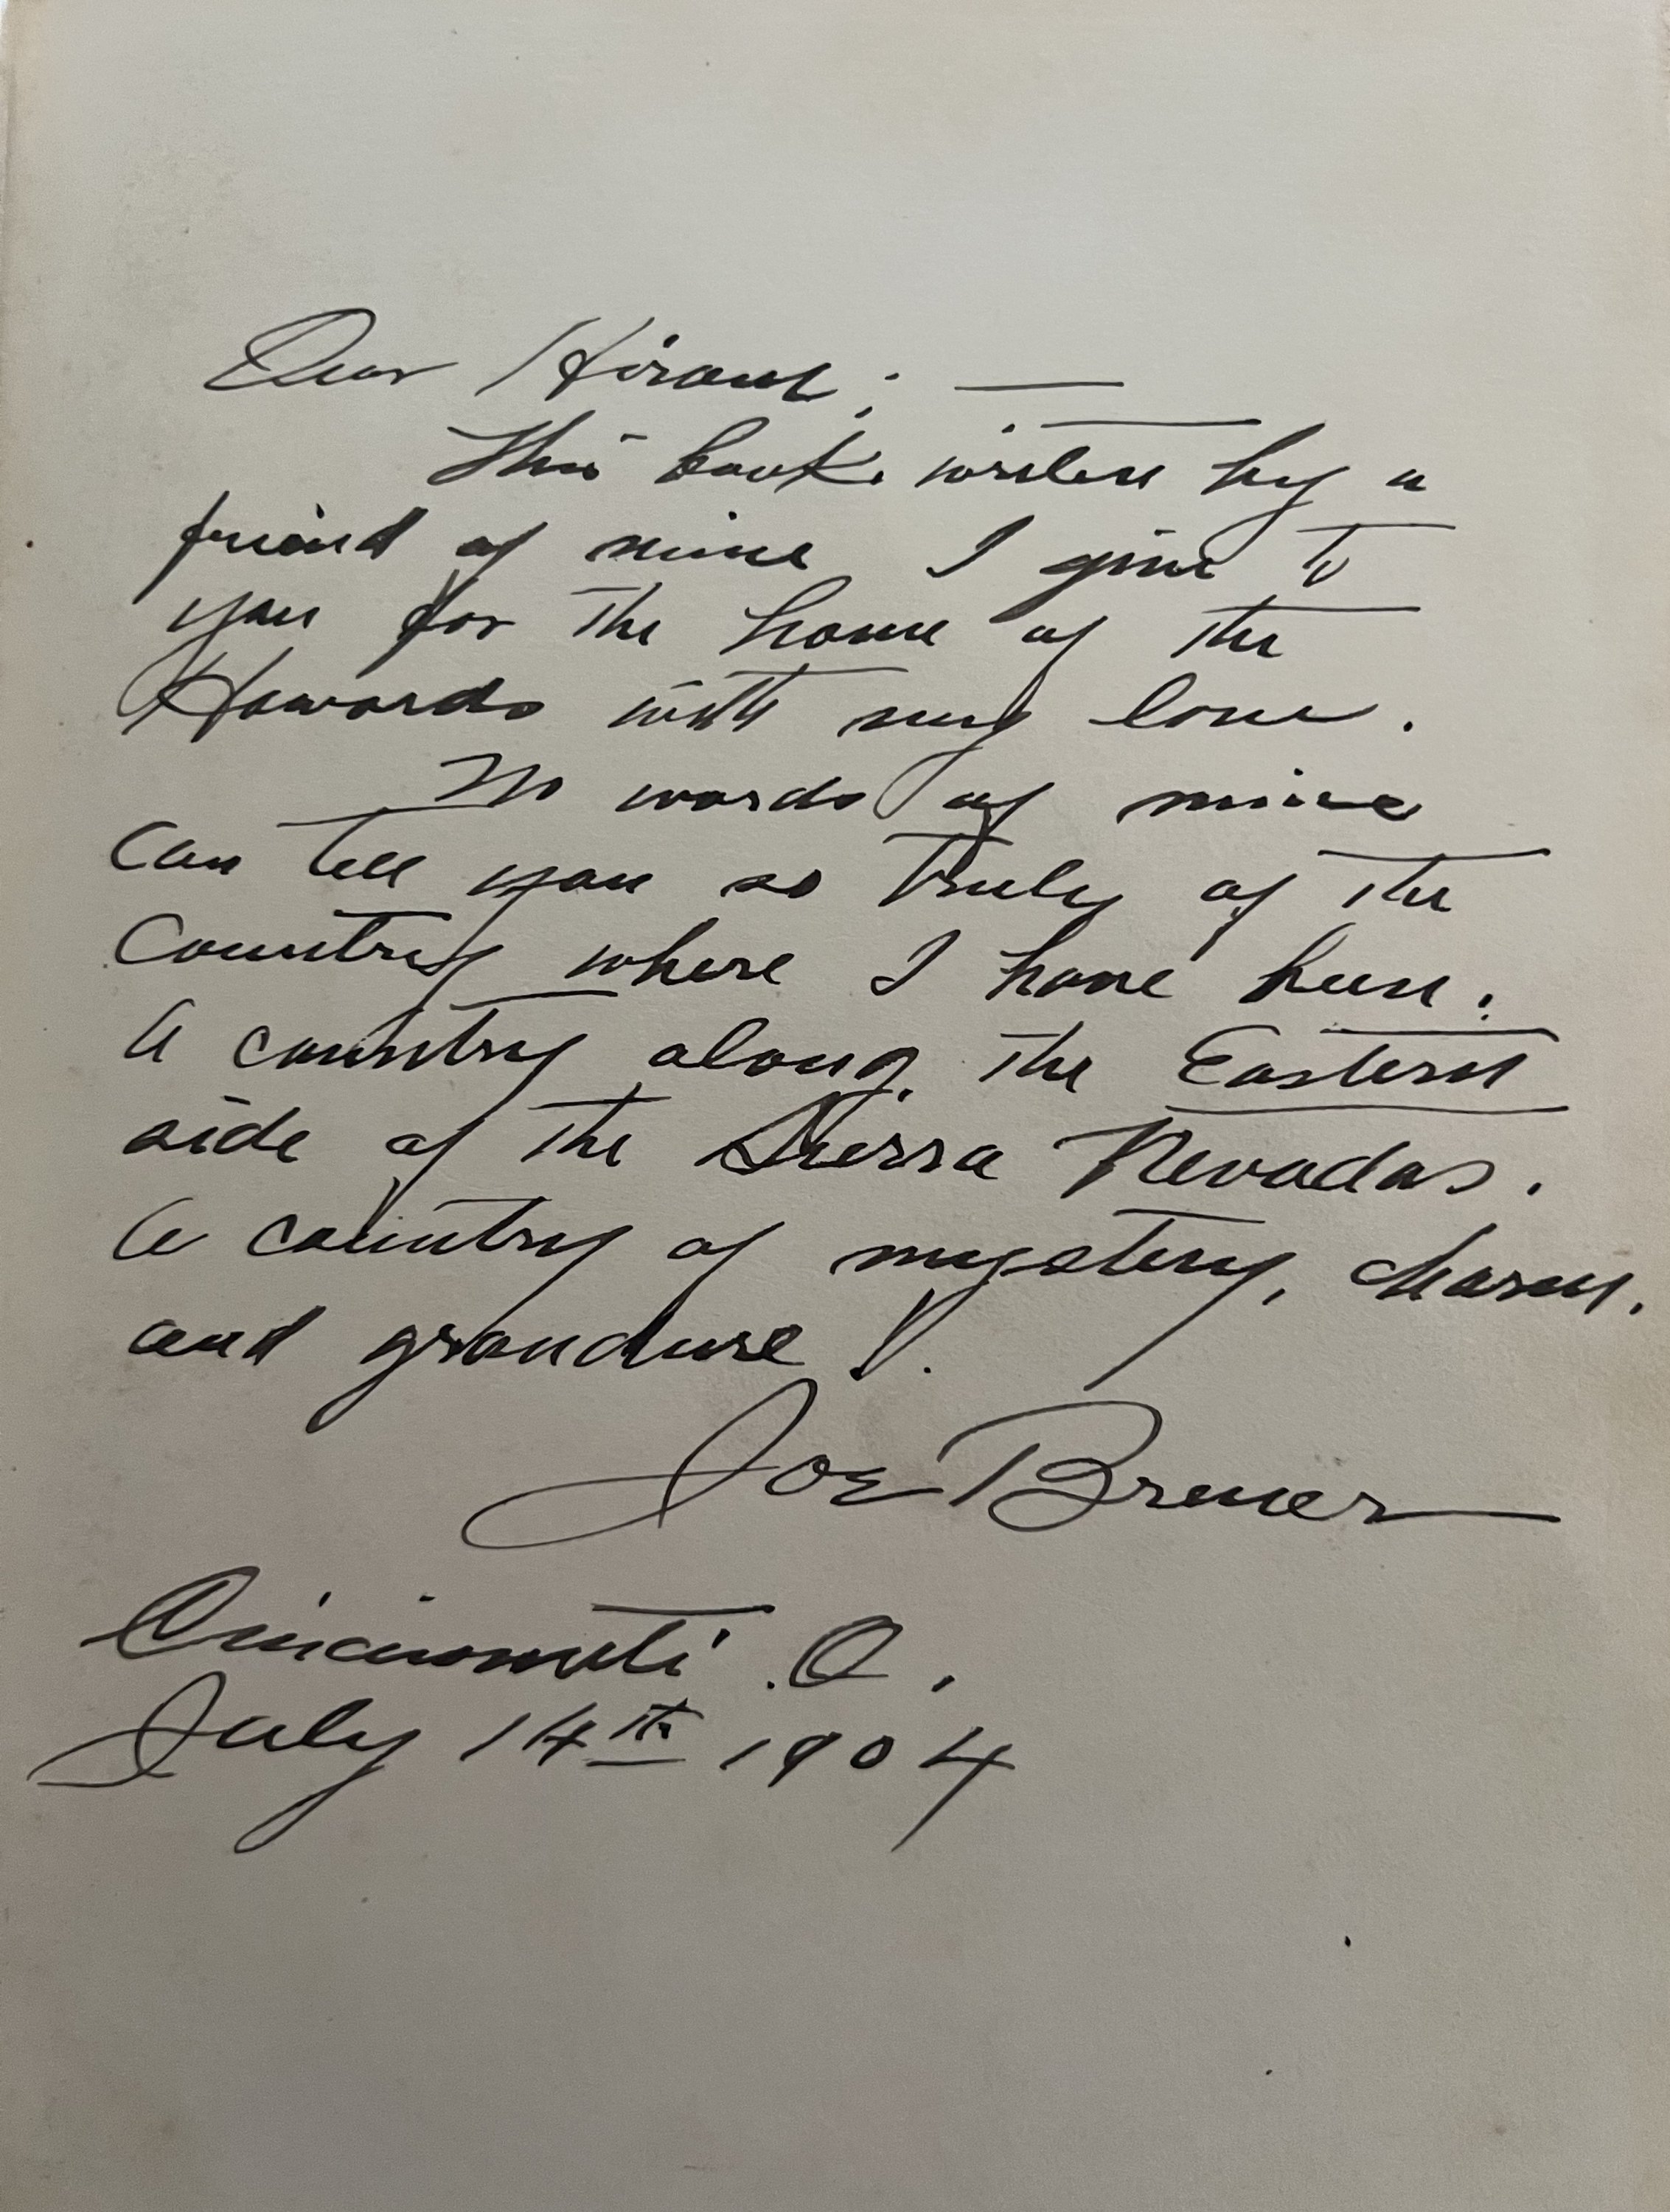 Dear Hiram; —
This book, writen by a
friend of mine I give to
you for the home of the
Howards with my love.
No words of mine
can tell you so truly of the
Country where I have been:
A country along the Eastern
side of the Sierra Nevadas.
A country of mystery, charm,
and grandure!
Joe Brener
Cincinnati. O.
July 14th 1904